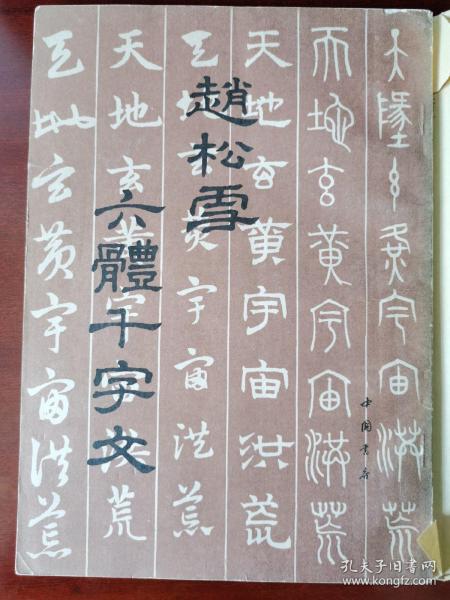 趙松雪
六體千字文
中國書店
天地玄黃宇宙洪荒
天地玄黃宇宙洪荒
天地玄黃宇宙洪荒
天地玄黃宇宙洪荒
天地玄黃宇宙洪荒
天地玄黃宇宙洪荒
孔夫子旧书网
www.kongfz.com